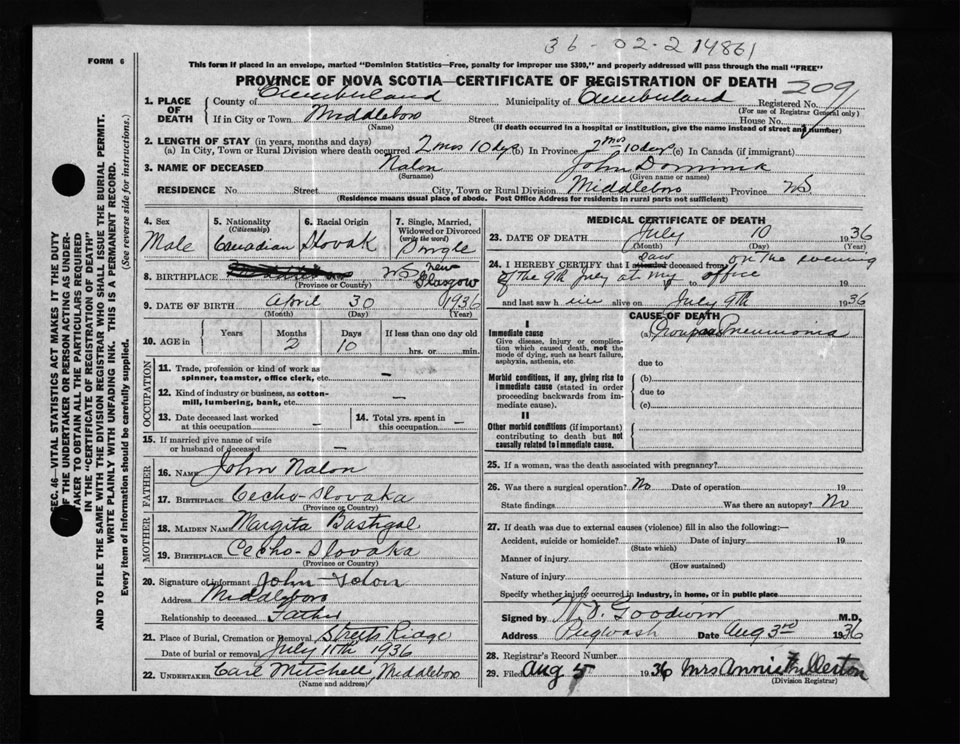 36-02-214861
FORM 6
This form if placed in an envelope, marked "Dominion Statistics—Free, penalty for improper use $300," and properly addressed will pass through the mail "FREE"
PROVINCE OF NOVA SCOTIA—CERTIFICATE OF REGISTRATION OF DEATH 209
1. PLACE OF DEATH County of Cumberland Municipality of Cumberland Registered No.
(For use of Registrar General only)
If in City or Town Middleboro Street House No.
(Name) (If death occurred in a hospital or institution, give the name instead of street and number)
2. LENGTH OF STAY (in years, months and days)
(a) In City, Town or Rural Division where death occurred 2 mos 10 dys (b) In Province 2 mos 10 days (c) In Canada (if immigrant)
3. NAME OF DECEASED Nalon John Dominik
(Surname) (Given name or names)
RESIDENCE No Street City, Town or Rural Division Middleboro Province NS
(Residence means usual place of abode. Post Office Address for residents in rural parts not sufficient)
4. Sex Male
5. Nationality (Citizenship) Canadian
6. Racial Origin Slovak
7. Single, Married, Widowed or Divorced (write the word) Single
8. BIRTHPLACE NS New Glasgow
(Province or Country)
9. DATE OF BIRTH April 30 1936
(Month) (Day) (Year)
10. AGE in Years Months 2 Days 10 If less than one day old hrs. or min.
OCCUPATION
11. Trade, profession or kind of work as spinner, teamster, office clerk, etc. –
12. Kind of industry or business, as cotton-mill, lumbering, bank, etc. –
13. Date deceased last worked at this occupation –
14. Total yrs. spent in this occupation –
15. If married give name of wife or husband of deceased –
FATHER
16. NAME John Nalon
17. BIRTHPLACE Cecho-Slovaka
(Province or Country)
MOTHER
18. MAIDEN NAME Margita Bastigal
19. BIRTHPLACE Cecho-Slovaka
(Province or Country)
20. Signature of informant John
Address Middleboro
Relationship to deceased Father
21. Place of Burial, Cremation or Removal Streets Ridge
Date of burial or removal July 11th 1936
22. UNDERTAKER Carl Mitchell, Middleboro
(Name and address)
MEDICAL CERTIFICATE OF DEATH
23. DATE OF DEATH July 10 1936
(Month) (Day) (Year)
24. I HEREBY CERTIFY that I saw attended deceased from on the evening
of the 9th July at my office to 19
and last saw him alive on July 9th 1936
CAUSE OF DEATH
I
Immediate cause (a) Pneumonia
Give disease, injury or complication which caused death, not the mode of dying, such as heart failure, asphyxia, asthenia, etc.
due to
Morbid conditions, if any, giving rise to immediate cause (stated in order proceeding backwards from immediate cause).
(b)
due to
(c)
II
Other morbid conditions (if important) contributing to death but not causally related to immediate cause.
25. If a woman, was the death associated with pregnancy?
26. Was there a surgical operation? No Date of operation 19
State findings Was there an autopsy? No
27. If death was due to external causes (violence) fill in also the following:—
Accident, suicide or homicide? Date of injury 19
(State which)
Manner of injury
(How sustained)
Nature of injury
Specify whether injury occurred in industry, in home, or in public place
Signed by Goodwin M.D.
Address Pugwash Date Aug 3rd 1936
28. Registrar's Record Number
29. Filed Aug 5 1936 Mrs Annie Fullerton
(Division Registrar)
SEC. 46—VITAL STATISTICS ACT MAKES IT THE DUTY
OF THE UNDERTAKER OR PERSON ACTING AS UNDER-
TAKER TO OBTAIN ALL THE PARTICULARS REQUIRED
IN THE "CERTIFICATE OF REGISTRATION OF DEATH"
AND TO FILE THE SAME WITH THE DIVISION REGISTRAR WHO SHALL ISSUE THE BURIAL PERMIT.
WRITE PLAINLY WITH UNFADING INK. THIS IS A PERMANENT RECORD.
Every item of Information should be carefully supplied. (See reverse side for instructions.)